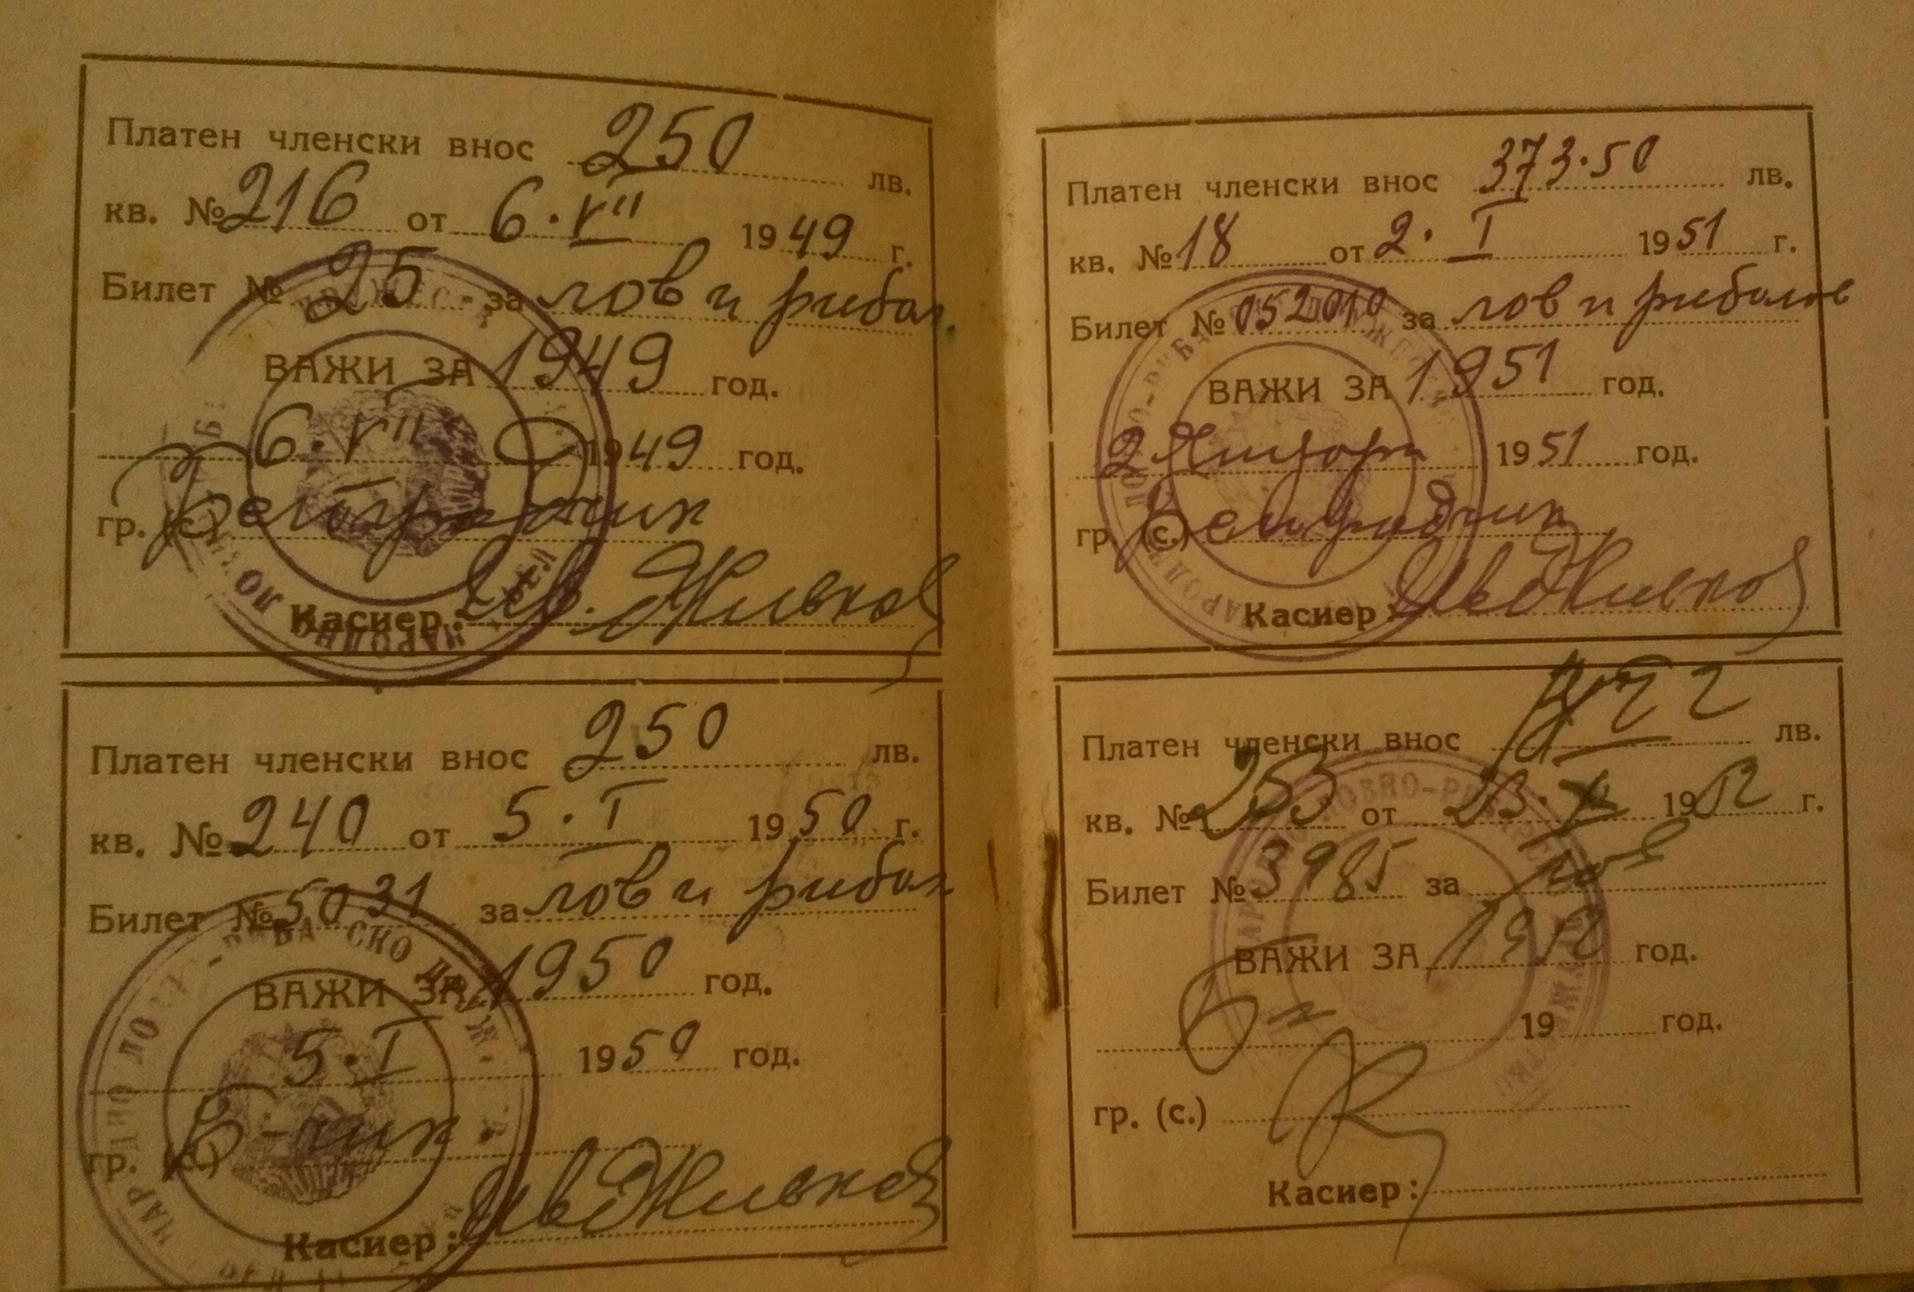 Платен членски внос 250 лв.
кв. № 216 от 6. VII 1949 г.
Билет № 25 за лов и рибол.
ВАЖИ ЗА 1949 год.
6. VII 1949 год.
гр. (с.)
Касиер: Ив. Живков
Платен членски внос 250 лв.
кв. № 240 от 5. I 1950 г.
Билет № 5031 за лов и рибол
ВАЖИ ЗА 1950 год.
5. I 1950 год.
гр. (с.)
Касиер: Ив Живков
Платен членски внос 373.50 лв.
кв. № 18 от 2. I 1951 г.
Билет № 052010 за лов и риболов
ВАЖИ ЗА 1951 год.
2 Януари 1951 год.
гр. (с.)
Касиер: Ив Живков
Платен членски внос лв.
кв. № 253 от 1952 г.
Билет № 3985 за лов
ВАЖИ ЗА 1952 год.
19 год.
гр. (с.)
Касиер: